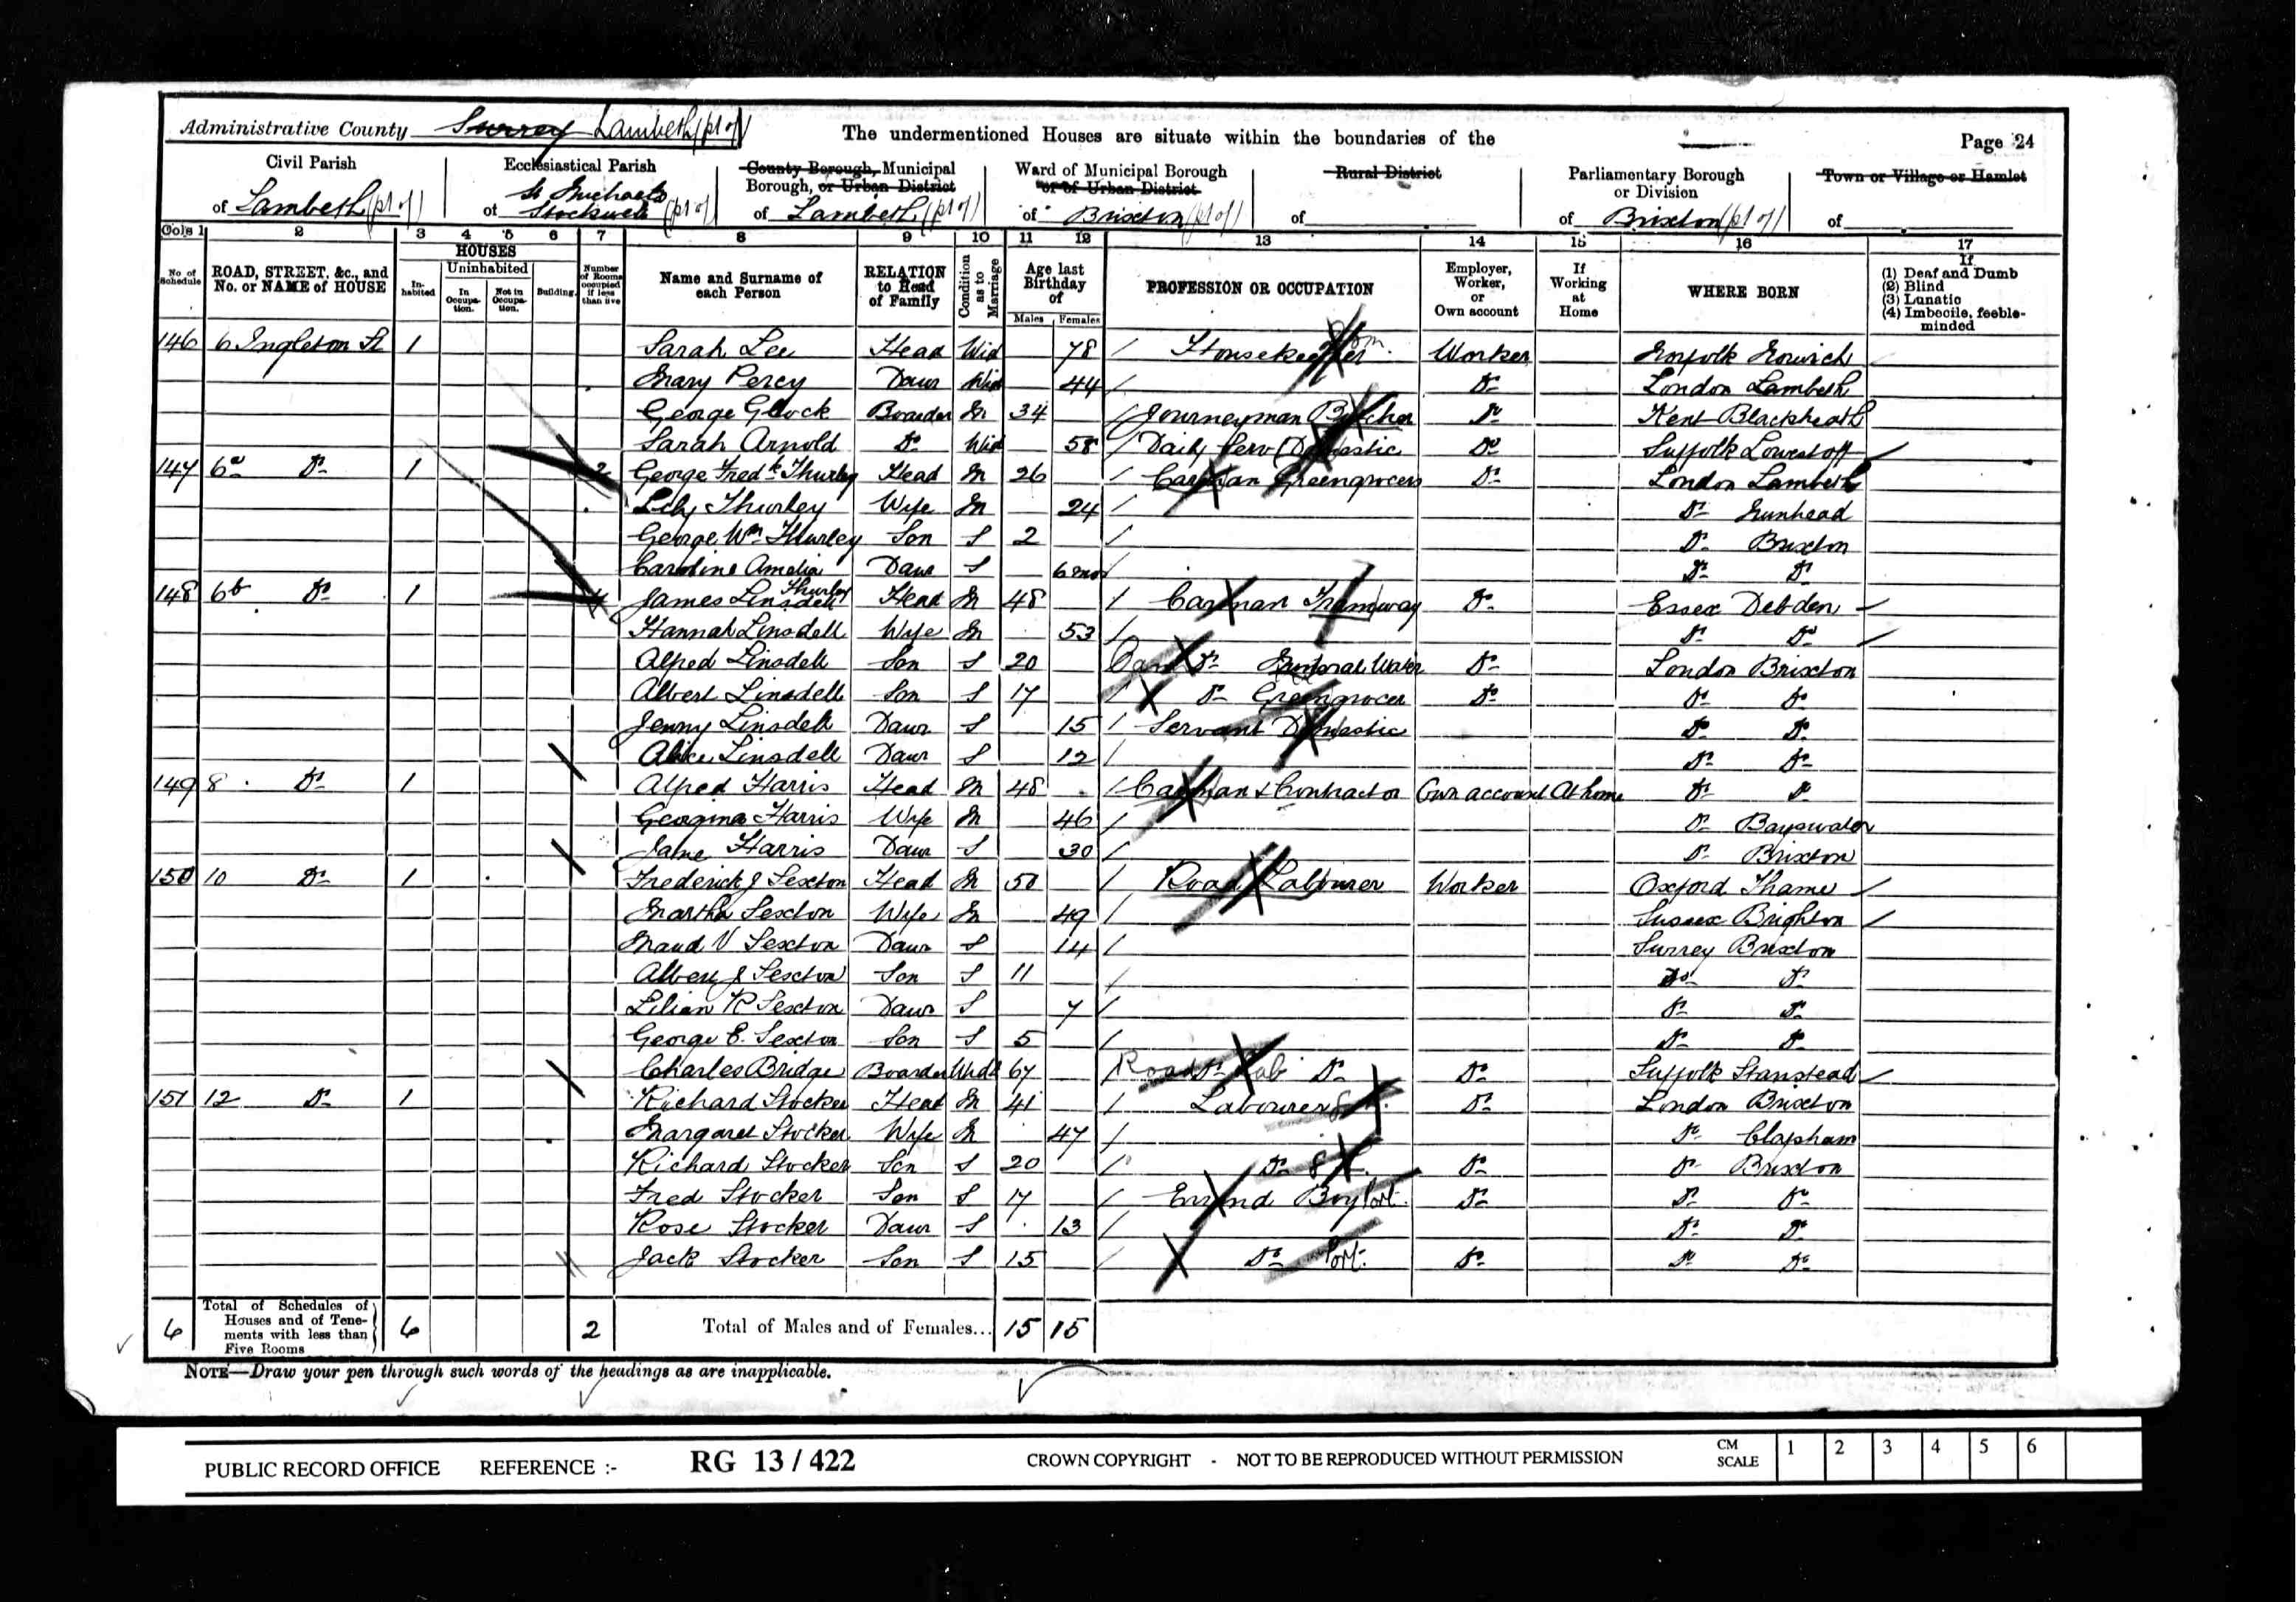 Administrative County Surrey Lambeth (pt of) The undermentioned Houses are situate within the boundaries of the Page 24
Civil Parish of Lambeth (pt of)
Ecclesiastical Parish of St Michaels Stockwell (pt of)
County Borough, Municipal Borough, or Urban District of Lambeth (pt of)
Ward of Municipal Borough or of Urban District of Brixton (pt of)
Rural District of
Parliamentary Borough or Division of Brixton (pt of)
Town or Village or Hamlet of
Cols 1 2 3 4 5 6 7 8 9 10 11 12 13 14 15 16 17
No of Schedule
ROAD, STREET, &c., and No. or NAME of HOUSE
HOUSES
In-habited
Uninhabited
In Occupa-tion.
Not in Occupa-tion.
Building.
Number of Rooms occupied if less than five
Name and Surname of each Person
RELATION to Head of Family
Condition as to Marriage
Age last Birthday of
Males Females
PROFESSION OR OCCUPATION
Employer, Worker, or Own account
If Working at Home
WHERE BORN
If
(1) Deaf and Dumb
(2) Blind
(3) Lunatic
(4) Imbecile, feeble-minded
146 6 Ingleton St 1 Sarah Lee Head Wid 78 Housekeeper Worker Norfolk Norwich
Mary Percy Daur Wid 44 Do London Lambeth
George Glock Boarder M 34 Journeyman Butcher Do Kent Blackheath
Sarah Arnold Do Wid 58 Daily Serv (Domestic Do Suffolk Lowestoff
147 6a Do 1 2 George Fredk Thurley Head M 26 Carman Greengrocers Do London Lambeth
Lily Thurley Wife M 24 Do Nunhead
George Wm Thurley Son S 2 Do Brixton
Caroline Amelia Thurley Daur S 6 mos Do Do
148 6b Do 1 4 James Linsdell Head M 48 Carman Tramway Do Essex Debden
Hannah Linsdell Wife M 53 Do Do
Alfred Linsdell Son S 20 Car Do Mineral Water Do London Brixton
Albert Linsdell Son S 17 Do Greengrocer Do Do Do
Jenny Linsdell Daur S 15 Servant Domestic Do Do
Alice Linsdell Daur S 12 Do Do
149 8 Do 1 Alfred Harris Head M 48 Carman & Contractor Own account At home Do Do
Georgina Harris Wife M 46 Do Bayswater
Jane Harris Daur S 30 Do Brixton
150 10 Do 1 Frederick J Sexton Head M 50 Road Labourer Worker Oxford Thame
Martha Sexton Wife M 49 Sussex Brighton
Maud V Sexton Daur S 14 Surrey Brixton
Albert J Sexton Son S 11 Do Do
Lilian R Sexton Daur S 7 Do Do
George E. Sexton Son S 5 Do Do
Charles Bridge Boarder Widr 67 Road Do Lab Do Do Suffolk Stanstead
151 12 Do 1 Richard Stocker Head M 41 Labourer Do London Brixton
Margaret Stocker Wife M 47 Do Clapham
Richard Stocker Son S 20 Do Do Do Brixton
Fred Stocker Son S 17 Errand Boy Port. Do Do Do
Rose Stocker Daur S 13 Do Do
Jack Stocker Son S 15 Do Port. Do Do Do
6 Total of Schedules of Houses and of Tene-ments with less than Five Rooms 6 2 Total of Males and of Females... 15 15
NOTE—Draw your pen through such words of the headings as are inapplicable.
PUBLIC RECORD OFFICE REFERENCE :- RG 13 / 422 CROWN COPYRIGHT - NOT TO BE REPRODUCED WITHOUT PERMISSION CM SCALE 1 2 3 4 5 6